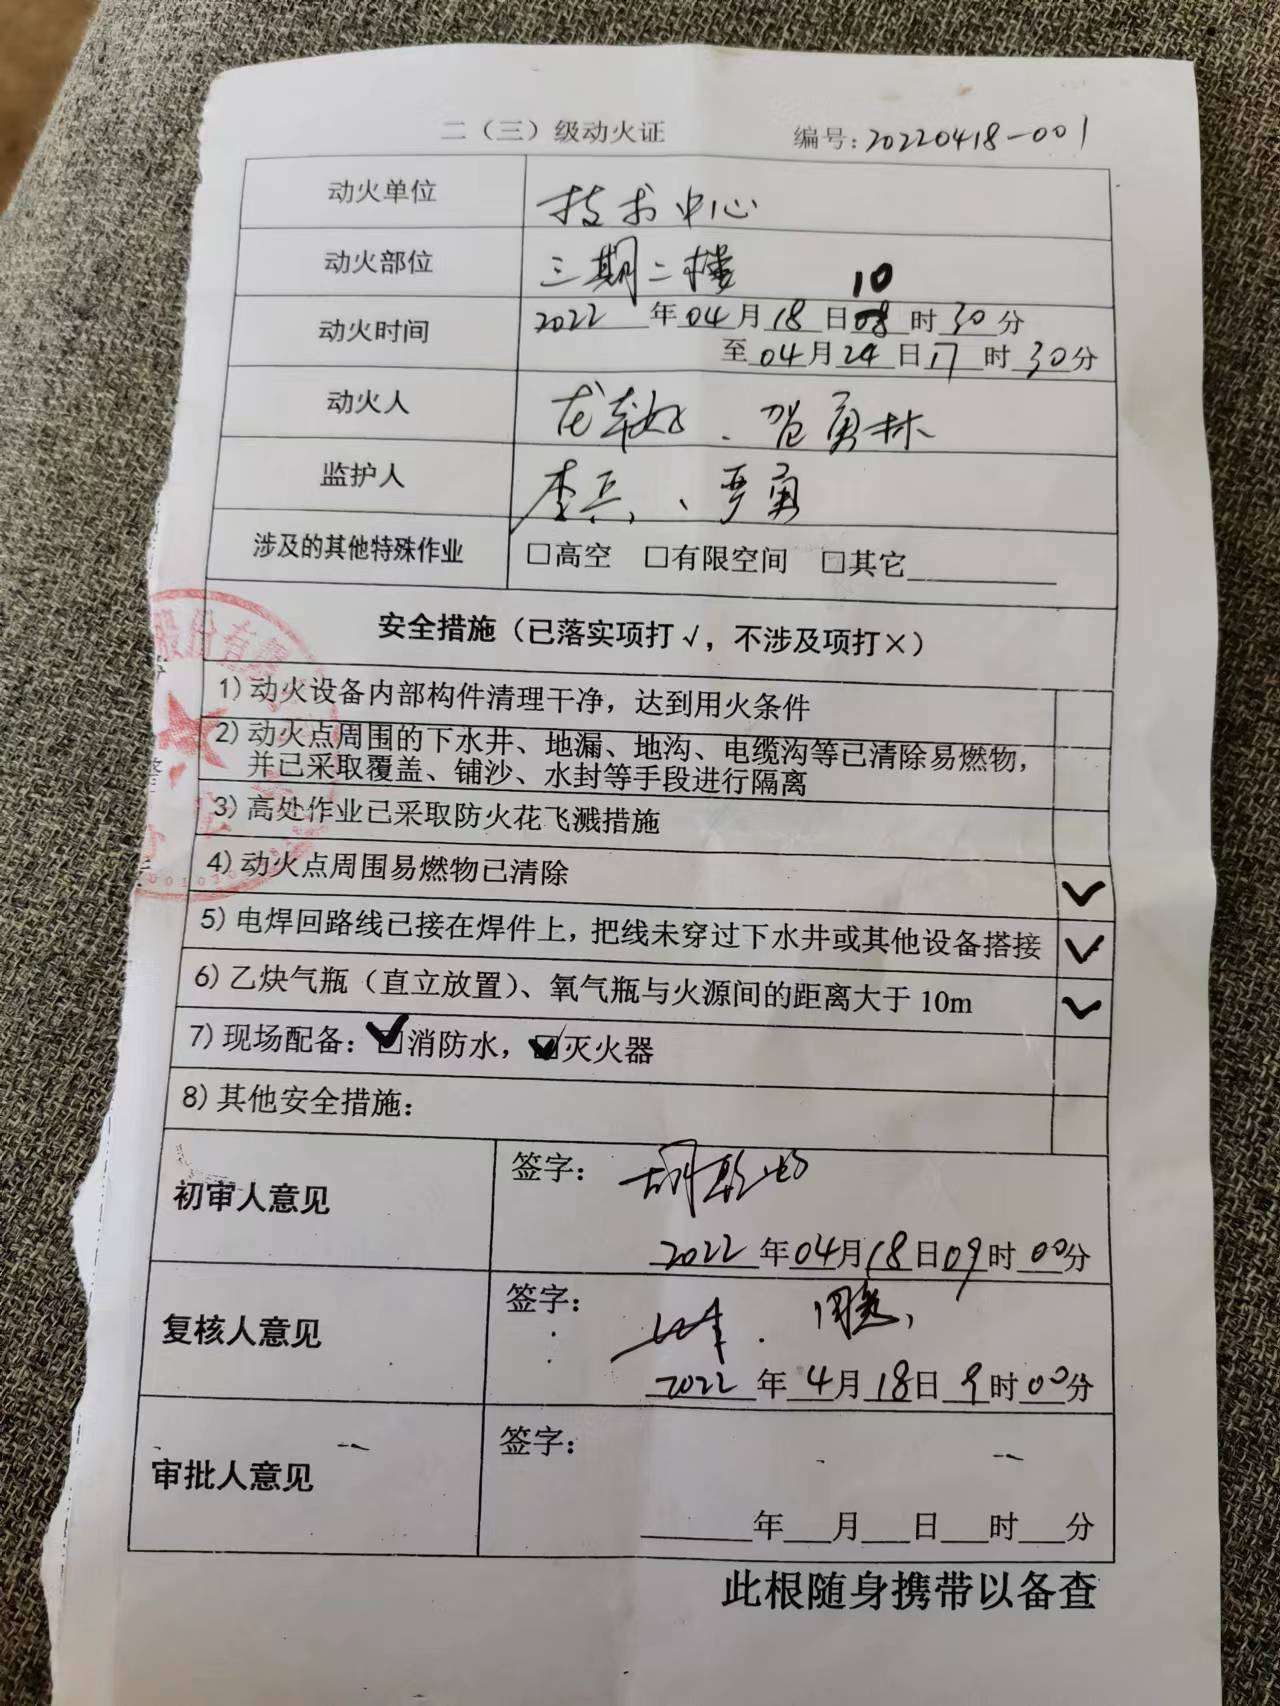 二（三）级动火证 编号: 20220418-001
动火单位 技术中心
动火部位 三期二楼
10
动火时间 2022 年 04 月 18 日 08 时 30 分
至 04 月 24 日 17 时 30 分
动火人 贺勇林
监护人 李兵、严勇
涉及的其他特殊作业 □高空 □有限空间 □其它
安全措施（已落实项打√，不涉及项打×）
1) 动火设备内部构件清理干净，达到用火条件
2) 动火点周围的下水井、地漏、地沟、电缆沟等已清除易燃物，
并已采取覆盖、铺沙、水封等手段进行隔离
3) 高处作业已采取防火花飞溅措施
4) 动火点周围易燃物已清除 ✓
5) 电焊回路线已接在焊件上，把线未穿过下水井或其他设备搭接 ✓
6) 乙炔气瓶（直立放置）、氧气瓶与火源间的距离大于 10m ✓
7) 现场配备：☑消防水，☑灭火器
8) 其他安全措施：
初审人意见 签字：
2022 年 04 月 18 日 09 时 00 分
复核人意见 签字：
2022 年 4 月 18 日 9 时 00 分
审批人意见 签字：
年 月 日 时 分
此根随身携带以备查
股份有限